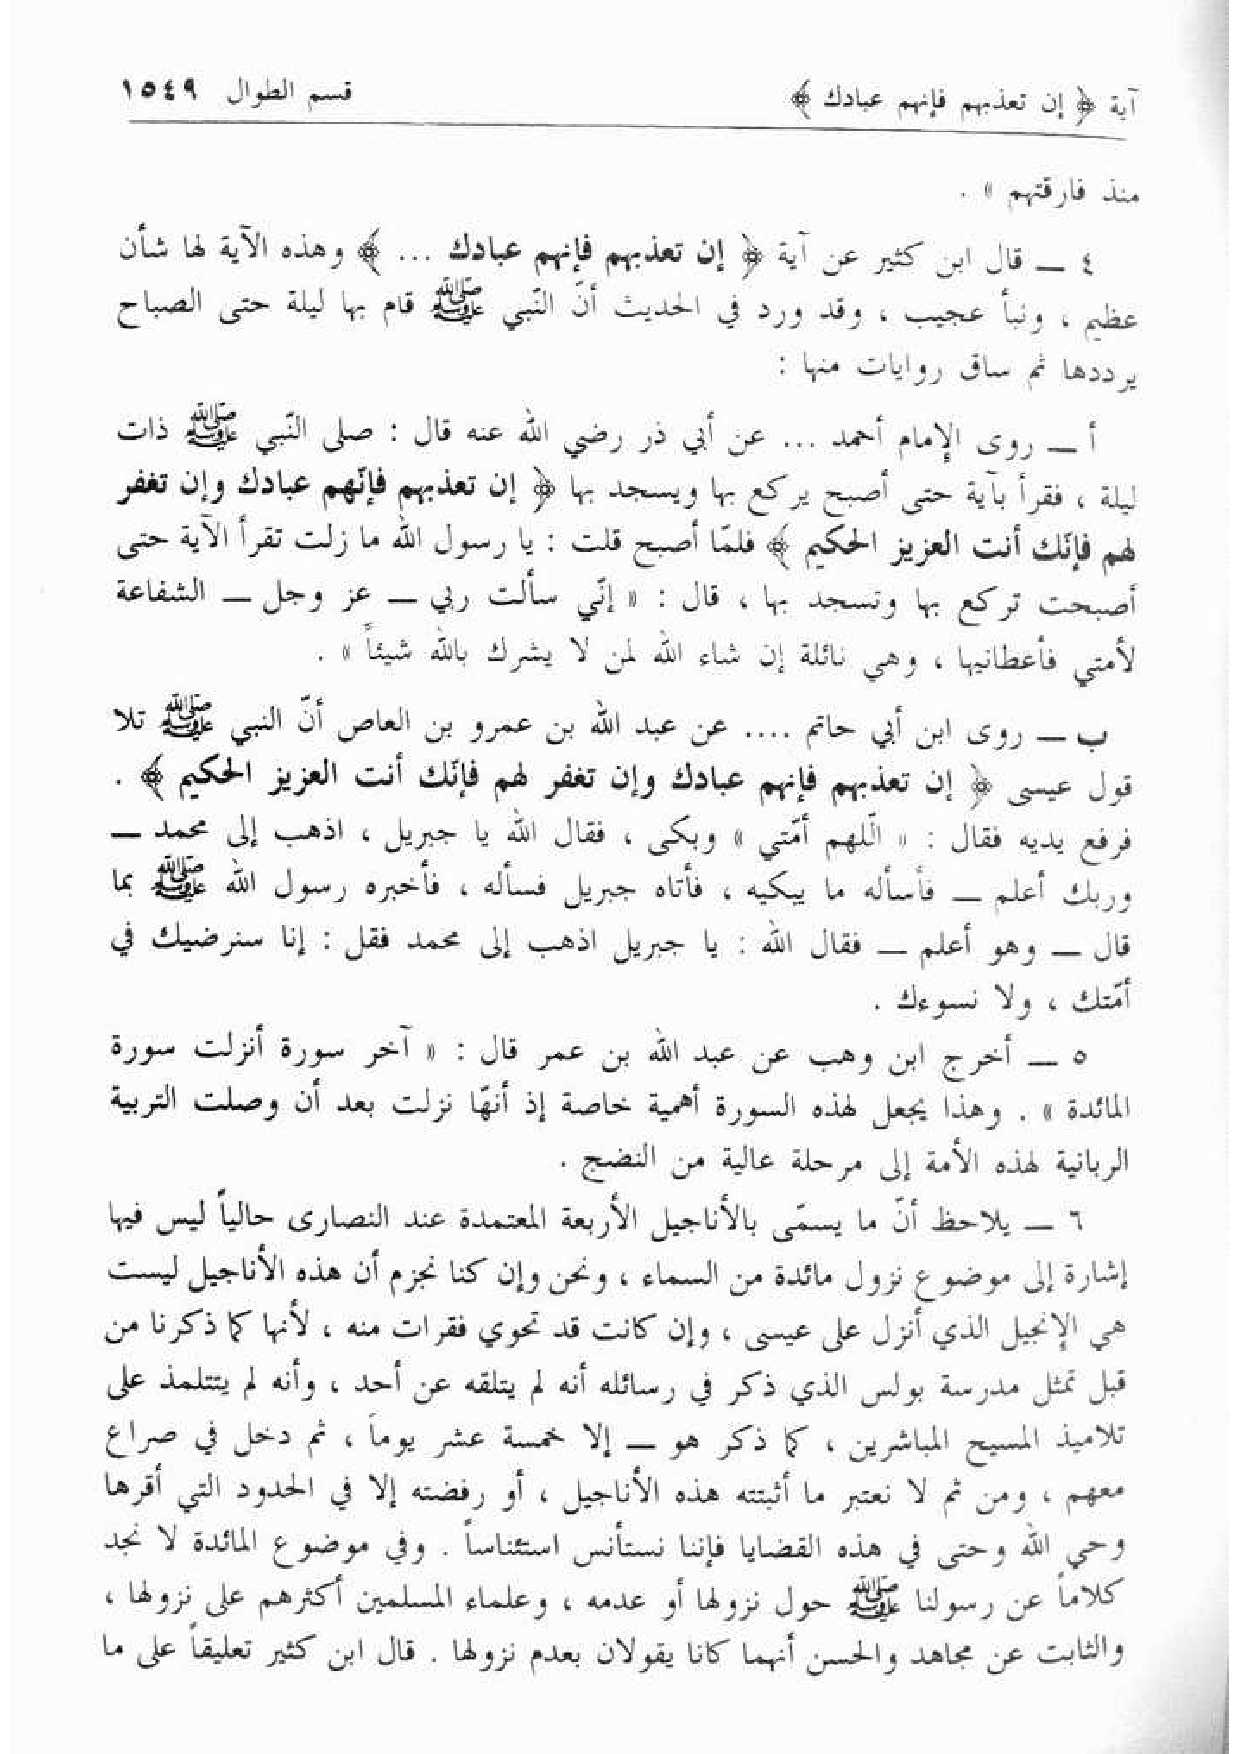 آية ﴿ إن تعذبهم فإنهم عبادك ﴾ قسم الطوال ١٥٤٩
منذ فارقتهم » .
٤ ــ قال ابن كثير عن آية ﴿ إن تعذبهم فإنهم عبادك ... ﴾ وهذه الآية لها شأن
عظيم ، ونبأ عجيب ، وقد ورد في الحديث أنّ النّبي ﷺ قام بها ليلة حتى الصباح
يرددها ثم ساق روايات منها :
أ ــ روى الإمام أحمد ... عن أبي ذر رضي الله عنه قال : صلى النّبي ﷺ ذات
ليلة ، فقرأ بآية حتى أصبح يركع بها ويسجد بها ﴿ إن تعذبهم فإنّهم عبادك وإن تغفر
لهم فإنّك أنت العزيز الحكيم ﴾ فلمّا أصبح قلت : يا رسول الله ما زلت تقرأ الآية حتى
أصبحت تركع بها وتسجد بها ، قال : « إنّي سألت ربي ــ عز وجل ــ الشفاعة
لأمتي فأعطانيها ، وهي نائلة إن شاء الله لمن لا يشرك بالله شيئاً » .
ب ــ روى ابن أبي حاتم .... عن عبد الله بن عمرو بن العاص أنّ النبي ﷺ تلا
قول عيسى ﴿ إن تعذبهم فإنهم عبادك وإن تغفر لهم فإنّك أنت العزيز الحكيم ﴾ .
فرفع يديه فقال : « الّلهم أمّتي » وبكى ، فقال الله يا جبريل ، اذهب إلى محمد ــ
وربك أعلم ــ فأسأله ما يبكيه ، فأتاه جبريل فسأله ، فأخبره رسول الله ﷺ بما
قال ــ وهو أعلم ــ فقال الله : يا جبريل اذهب إلى محمد فقل : إنا سنرضيك في
أمّتك ، ولا نسوءك .
٥ ــ أخرج ابن وهب عن عبد الله بن عمر قال : « آخر سورة أنزلت سورة
المائدة » . وهذا يجعل لهذه السورة أهمية خاصة إذ أنهّا نزلت بعد أن وصلت التربية
الربانية لهذه الأمة إلى مرحلة عالية من النضج .
٦ ــ يلاحظ أنّ ما يسمّى بالأناجيل الأربعة المعتمدة عند النصارى حالياً ليس فيها
إشارة إلى موضوع نزول مائدة من السماء ، ونحن وإن كنا نجزم أن هذه الأناجيل ليست
هي الإنجيل الذي أنزل على عيسى ، وإن كانت قد تحوي فقرات منه ، لأنها كما ذكرنا من
قبل تمثل مدرسة بولس الذي ذكر في رسائله أنه لم يتلقه عن أحد ، وأنه لم يتتلمذ على
تلاميذ المسيح المباشرين ، كما ذكر هو ــ إلا خمسة عشر يوماً ، ثم دخل في صراع
معهم ، ومن ثم لا نعتبر ما أثبتته هذه الأناجيل ، أو رفضته إلا في الحدود التي أقرها
وحي الله وحتى في هذه القضايا فإننا نستأنس استئناساً . وفي موضوع المائدة لا نجد
كلاماً عن رسولنا ﷺ حول نزولها أو عدمه ، وعلماء المسلمين أكثرهم على نزولها ،
والثابت عن مجاهد والحسن أنهما كانا يقولان بعدم نزولها . قال ابن كثير تعليقاً على ما